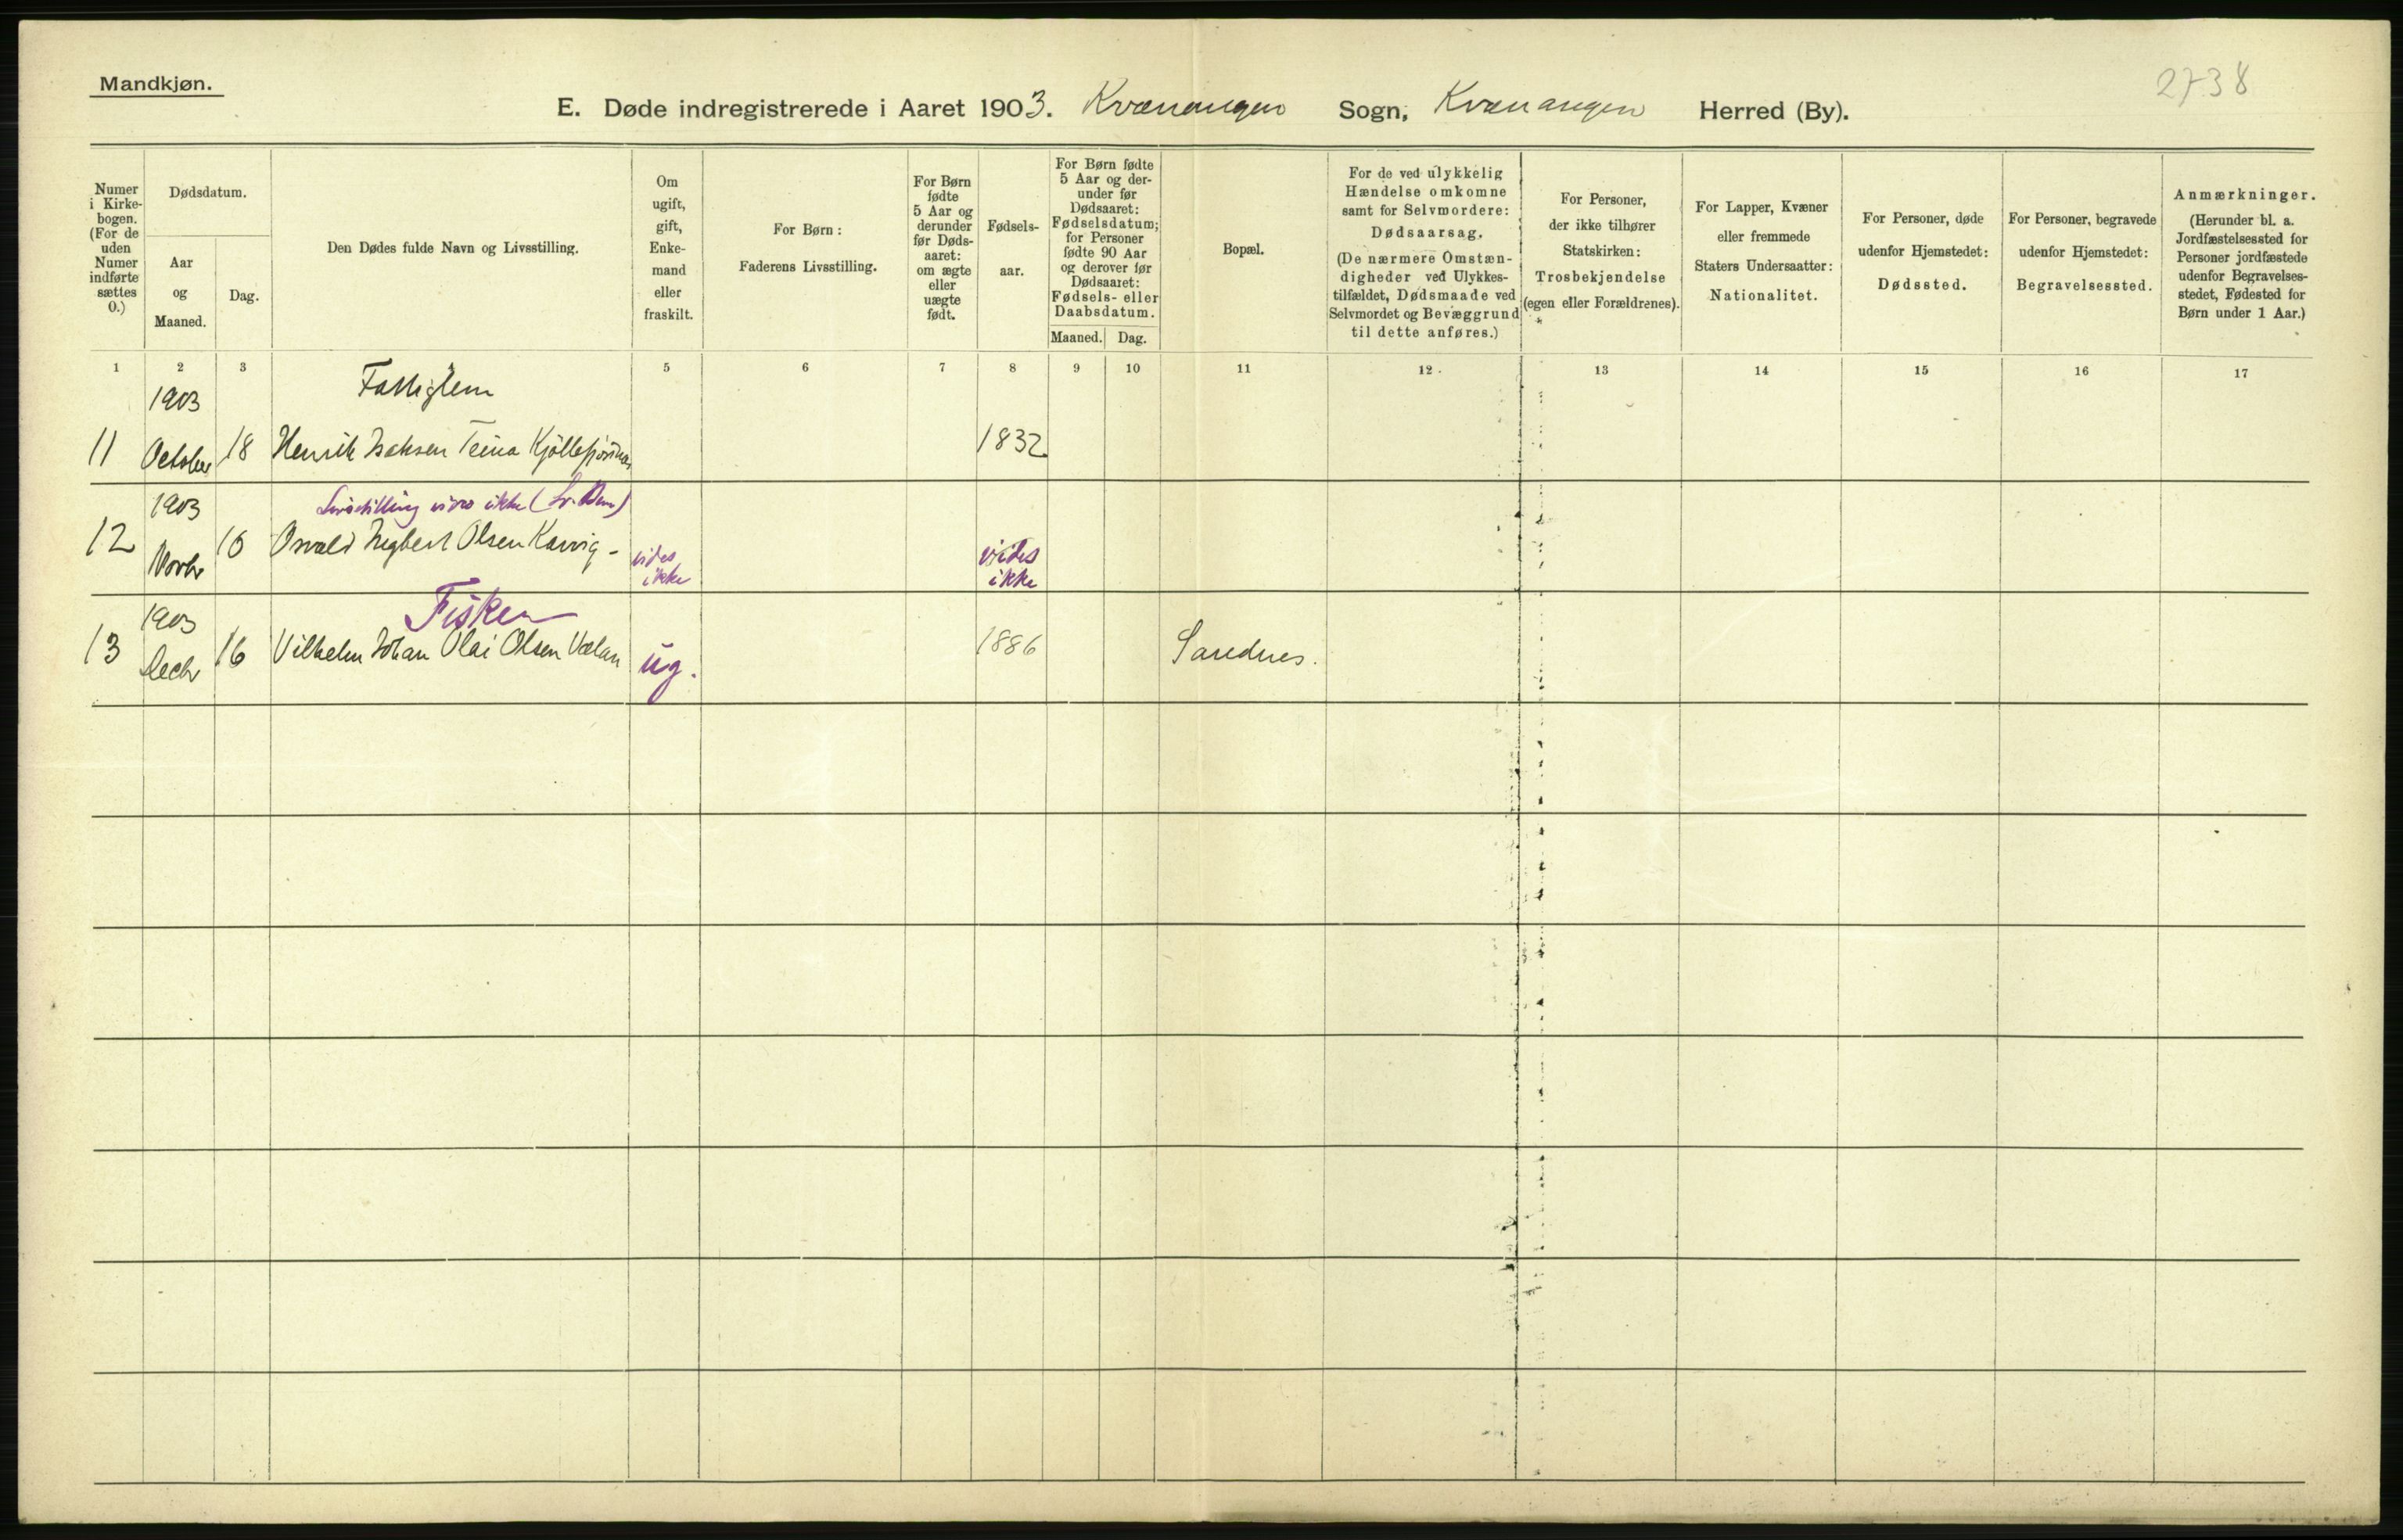 Mandkjøn.
2738
E. Døde indregistrerede i Aaret 1903. Kvænangen Sogn, Kvænangen Herred (By).
Numer i Kirkebogen. (For de uden Numer indførte sættes 0.)
Dødsdatum.
Aar og Maaned.
Dag.
Den Dødes fulde Navn og Livsstilling.
Om ugift, gift, Enkemand eller fraskilt.
For Børn: Faderens Livsstilling.
For Børn fødte 5 Aar og derunder før Dødsaaret: om ægte eller uægte født.
Fødselsaar.
For Børn fødte 5 Aar og derunder før Dødsaaret: Fødselsdatum; for Personer fødte 90 Aar og derover før Dødsaaret: Fødsels- eller Daabsdatum.
Maaned. Dag.
Bopæl.
For de ved ulykkelig Hændelse omkomne samt for Selvmordere: Dødsaarsag. (De nærmere Omstændigheder ved Ulykkestilfældet, Dødsmaade ved Selvmordet og Bevæggrund til dette anføres.)
For Personer, der ikke tilhører Statskirken: Trosbekjendelse (egen eller Forældrenes).
For Lapper, Kvæner eller fremmede Staters Undersaatter: Nationalitet.
For Personer, døde udenfor Hjemstedet: Dødssted.
For Personer, begravede udenfor Hjemstedet: Begravelsessted.
Anmærkninger. (Herunder bl. a. Jordfæstelsessted for Personer jordfæstede udenfor Begravelsesstedet, Fødested for Børn under 1 Aar.)
1 2 3 5 6 7 8 9 10 11 12 13 14 15 16 17
1903 Fattiglem
11 October 18 Henrik Isaksen 1832
1903 Livsstilling vides ikke
12 Novbr 16 Osvald Olsen vides ikke vides ikke
1903 Fisker
13 Decbr 16 Vilhelm Johan Olai Olsen ug. 1886 Sarednes.